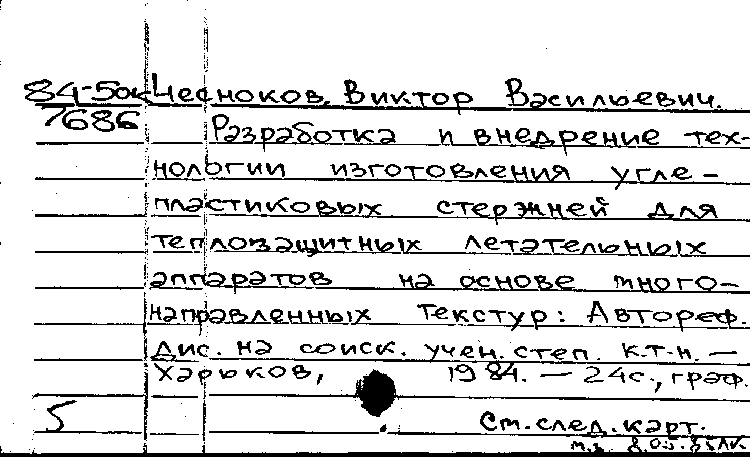 84-5ок Чесноков, Виктор Васильевич.
7686 Разработка и внедрение тех-
нологии изготовления угле-
пластиковых стержней для
теплозащитных летательных
аппаратов на основе много-
направленных текстур: Автореф.
Дис. на соиск. учен. степ. к.т.н. —
Харьков, 1984. — 24с., граф.
5 См. след. карт.
8.05.85